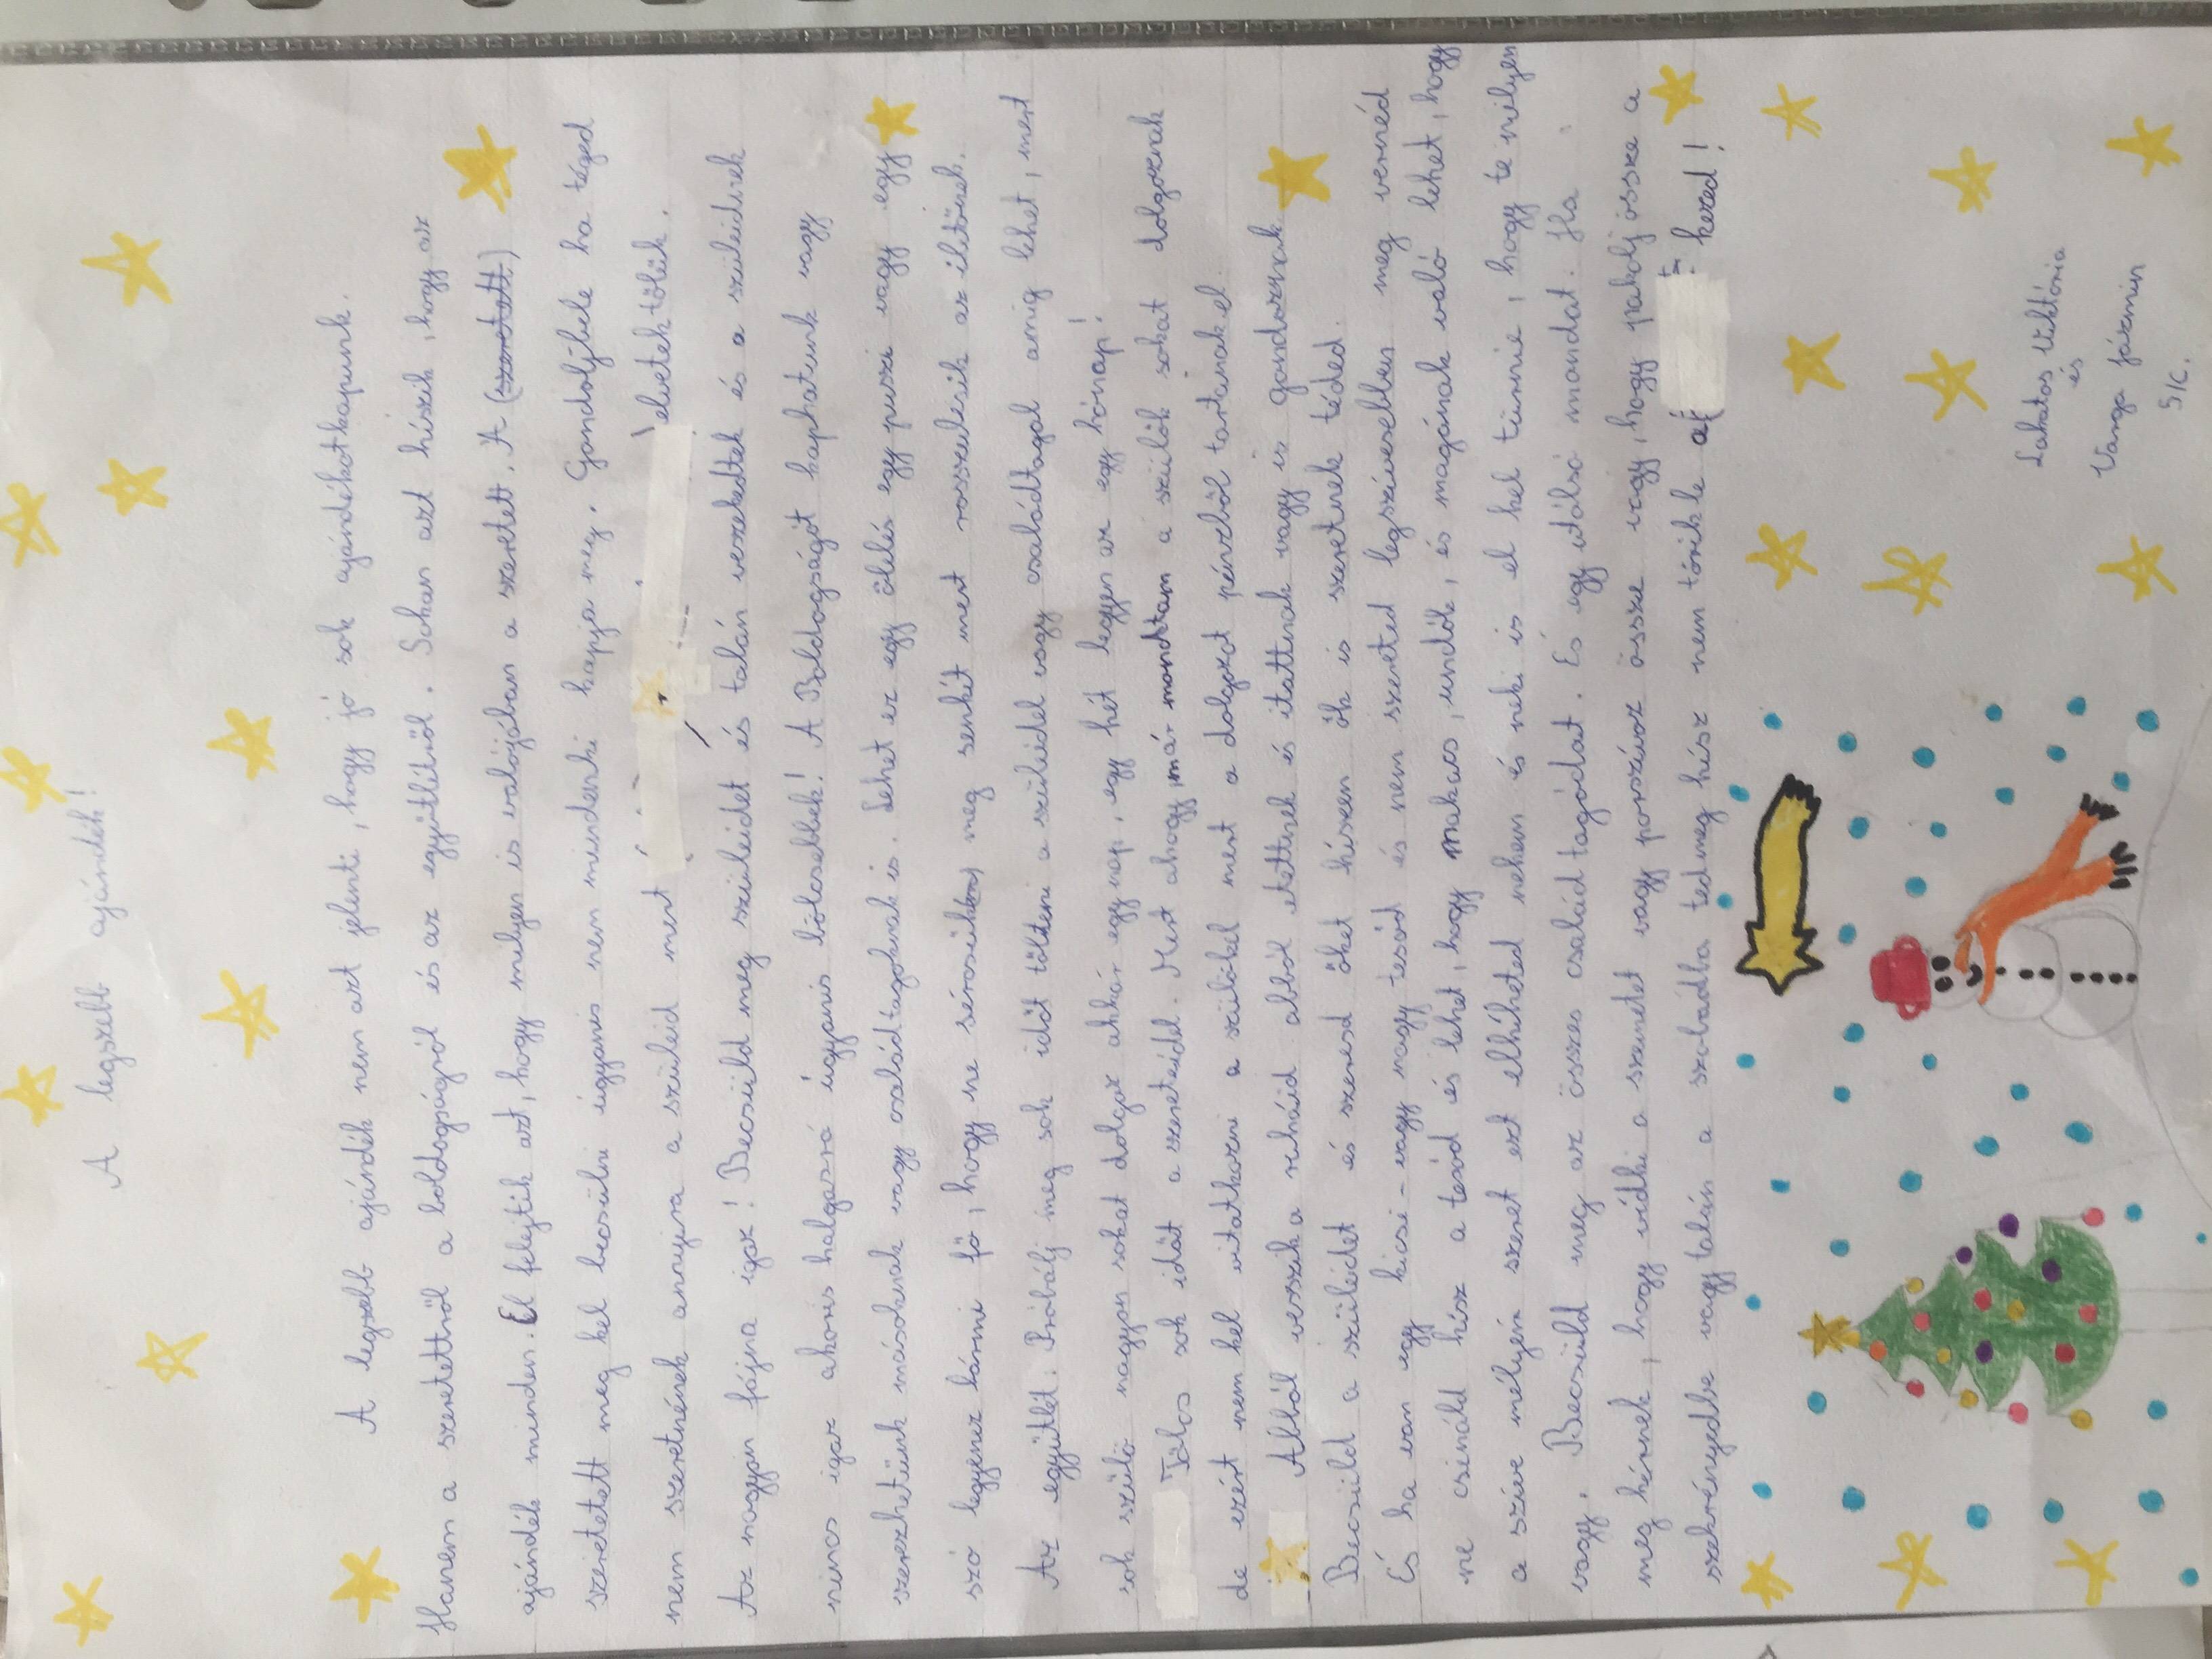 A legszebb ajándék!
A legszebb ajándék nem azt jelenti, hogy jó sok ajándékotkapunk.
Hanem a szeretettről a boldogságról és az együtlétről. Sokan azt hiszik, hogy az
ajándék minden. El felejtik azt, hogy milyen is valójában a szeretett. A (szeretett)
szeretetett meg kel becsülni úgyanis nem mindenki kapja meg. Gondoljbele ha téged
nem szeretnének annyira a szüleid mert elvetektőlük.
Az nagyon fájna igaz! Becsüld meg szüleidet és talán veszkedtek és a szüleidnek
nincs igaz akoris halgasrá úgyanis bölcsebbek! A Boldogságot kaphatunk vagy
szerezhetünk másoknak vagy családtagoknak is. Lehet ez egy ölelés egy puszi vagy egy
szó legyenez bármi fő, hogy ne sérosük meg senkit mert rosszulesik az illetőnek.
Az együtlét. Próbálj meg sok időt tölteni a szüleidel vagy családtagal amig lehet, mert
sok szülő nagyon sokat dolgoz akkár egy nap, egy hét legyen az egy hónap!
Tölcs sok időt a szereteidel. Mert ahogy már mondtam a szülök sokat dolgoznak
de ezért nem kel vitatkozni a szülökel mert a dolgozot pénzből tartanak el
Abból veszik a ruháid abból etettnek és itattnak vagy is gondoznak.
Becsüld a szüleidet és szeresd őket hiszen ők is szeretnek téded.
És ha van egy kicsi-vagy nagy tesód és nem szereted legszivesebben meg vernéd
ne csináld hisz a tesód és lehet, hogy makacs, undók, és magának való lehet, hogy
a szive mélyén szeret ezt elhiheted nekem és neki is el kel tünnie, hogy te milyen
vagy. Becsüld meg az összes család tagódat. És egy utólsó mondat. Ha
meg kérnek, hogy vidki a szemetet vagy porszivoz össze vagy, hogy pakolj össze a
szekrényedbe vagy talán a szobádba tedmeg hisz nem törik le a kezed!
Lakatos Viktória
és
Varga Jázmin
5/C.